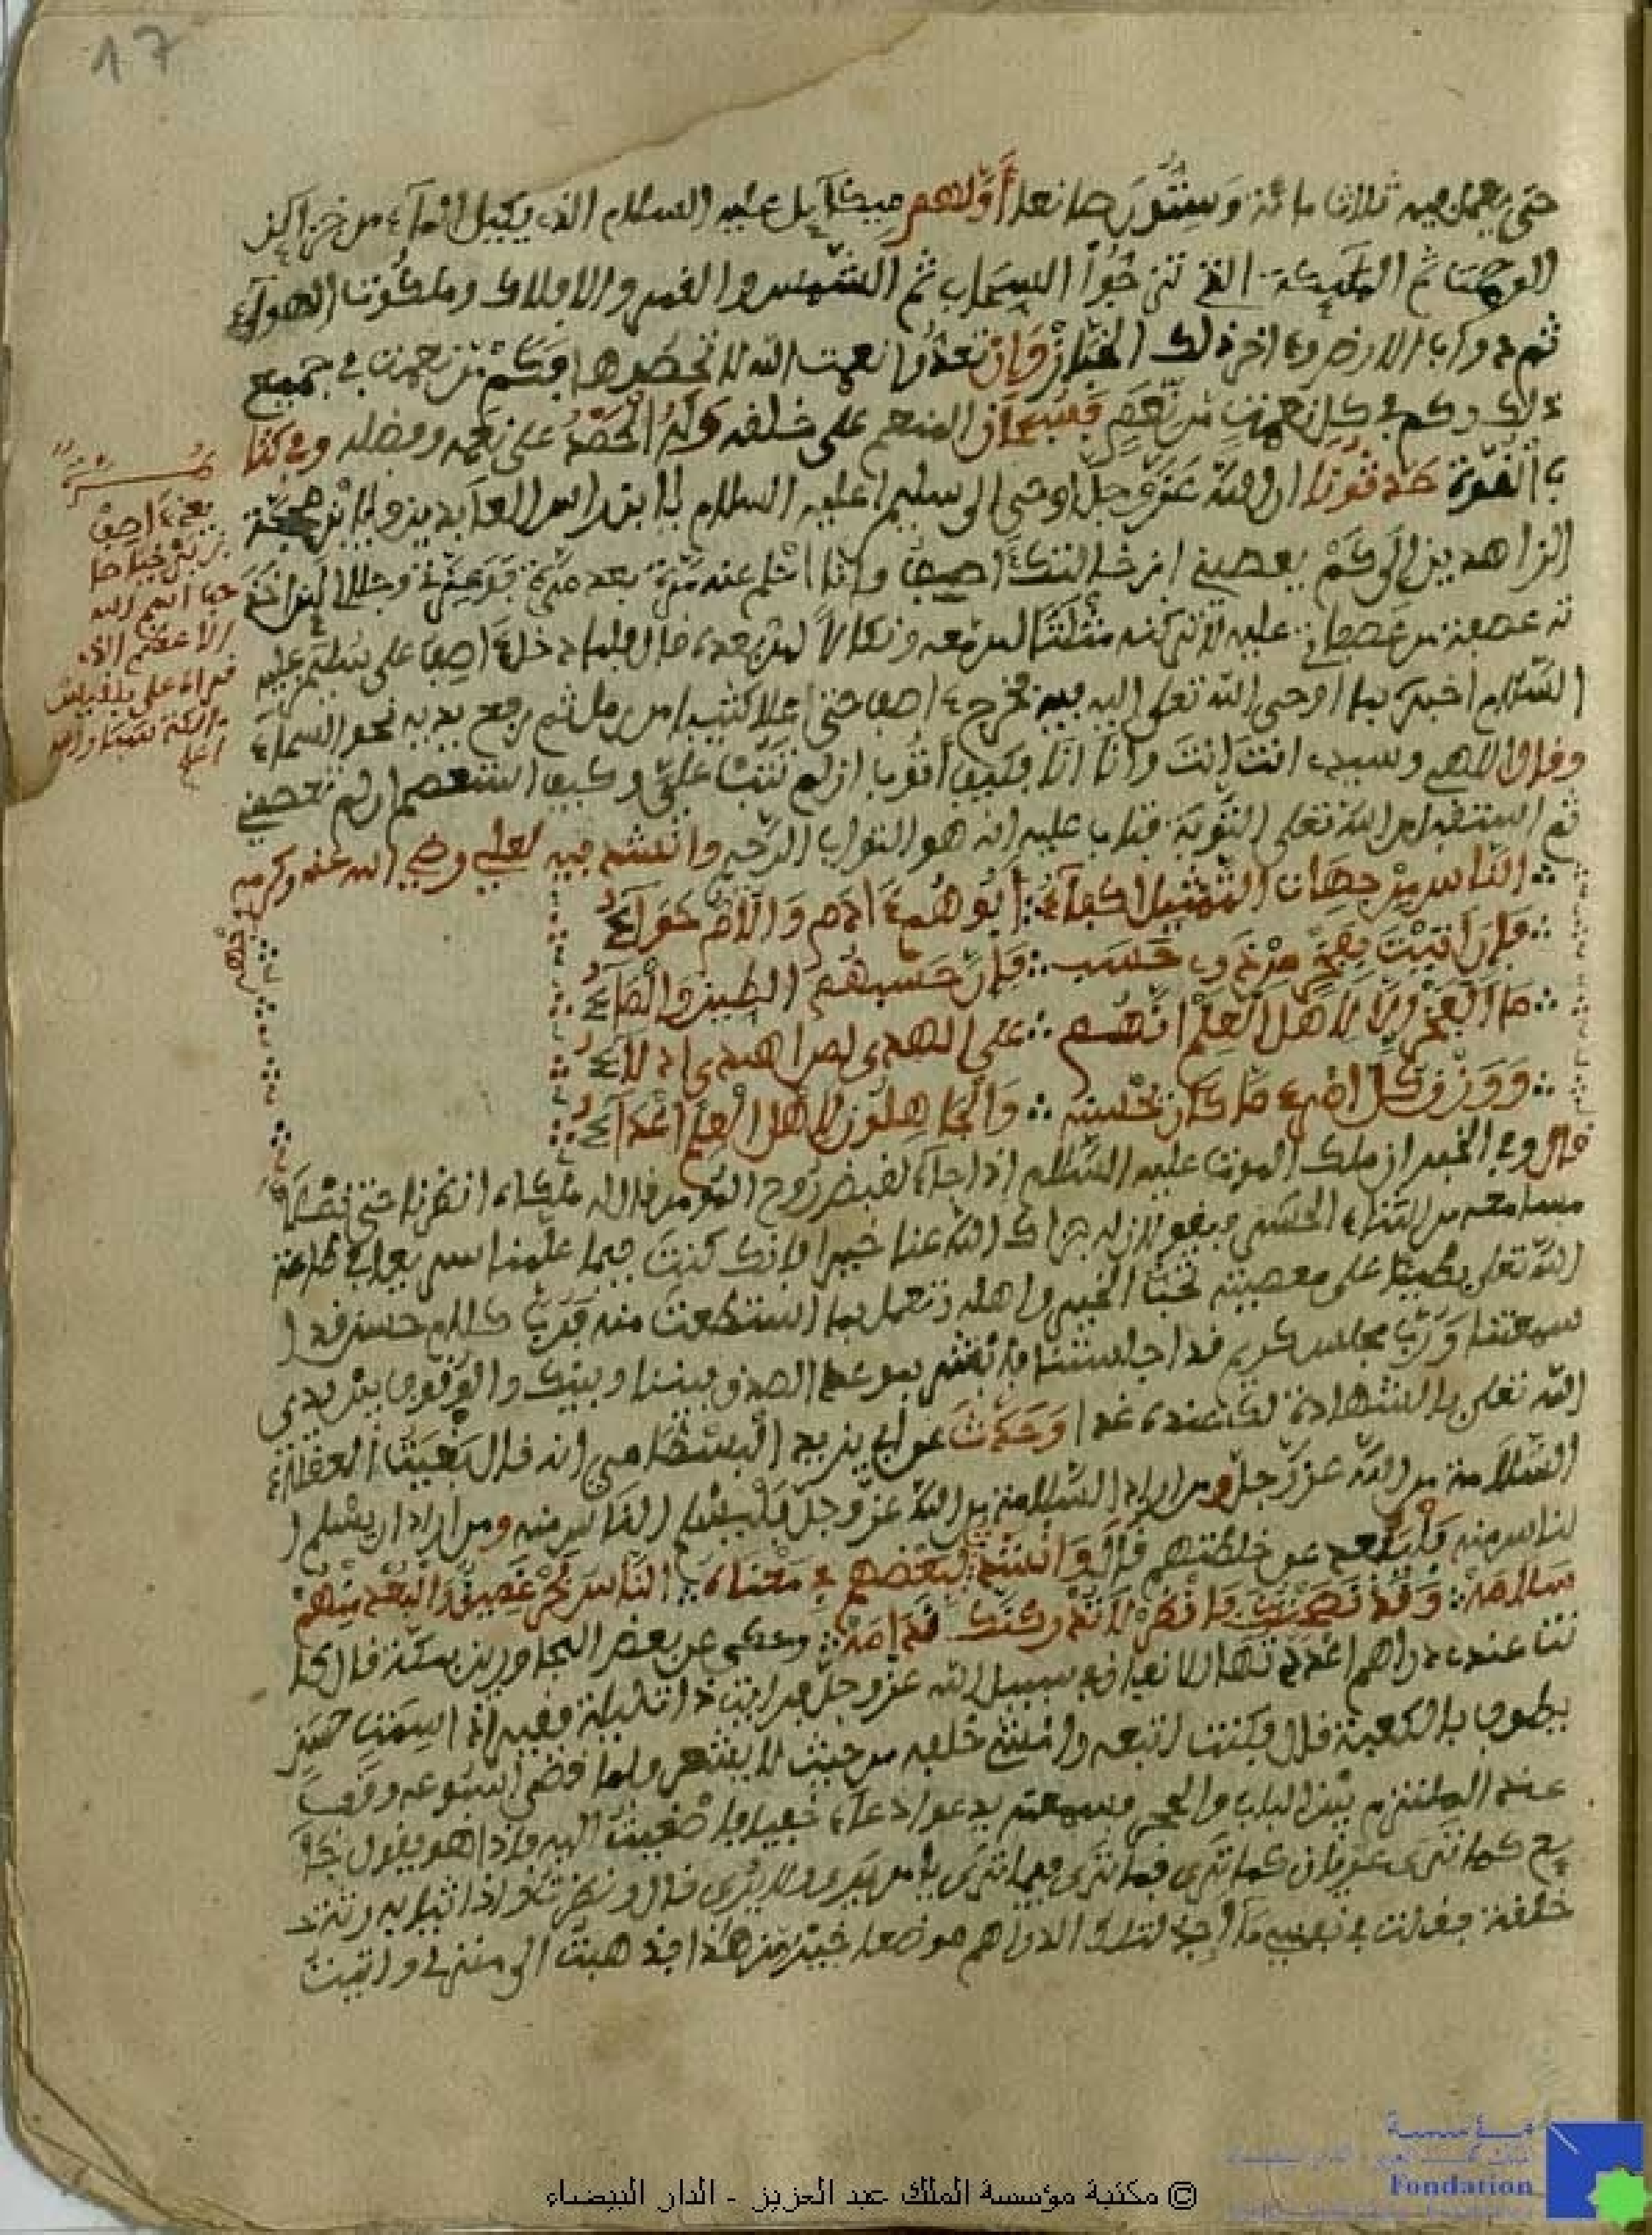 17
حتى يعمل فيه ثلاثا مائة وستون صانعا أولهم ميكآيل عليه السلام الذي يكيل المآء من خزاين
الرحمة ثم الملئكة التي تزجوا السحاب ثم الشمس والقمر والافلاك وملكوت الهوآء
ثم دواب الارض وءاخر ذلك الخباز وإن تعدوا نعمت الله لا تحصوها فكم من نعمت في جميع
ذلك وكم في كل نعمت من نعم فسبحان المنعم على خلقه وله الحمد على نعمه وفضله وفي كتا
ب القوة حدثونا ان الله عز وجل اوحى الى سليمان عليه السلام يا ابن راس العابدين ويا ابن محجة
الزاهدين الى كم يعصيني ابن خالتك ءاصف وانا احلم عنه مرة بعد مرة فوعزتي وجلالي لين اخذ
ته عصفة من عصفاتي عليه لاتركنه مثلة لمن معه ونكالا لمن بعده قال فلما دخل ءاصف على سليمان عليه
السلام اخبره بما اوحى الله تعلى اليه فيه فخرج ءاصف حتى اعلا كثيبا من رمل ثم رفع يديه نحو السمآء
وقال الاهي وسيدي انت انت وانا انا فكيف أتوب ان لم تتب علي وكيف استعصم ان لم تعصمني
ثم استقبل من الله تعلى التوبة فتاب عليه انه هو التواب الرحيم وانشد فيه لعلي رضي الله عنه وكرم
وجهه
الناس من جهات التمثيل اكفآء أبوهم ءادم والام حوآء
فإن اتيت بفخر من ذوي حسب فإن حسبهم الطين والمآء
ما الفخر إلا لاهل العلم انهم على الهدى لمن اهتدى ادلآء
ووزن كل امرئ ما كان يحسنه والجاهلون لاهل العلم اعدآء
قال وفي الخبر ان ملك الموت عليه السلام اذا جآء لقبض روح المومن قال له ملكاه انظرنا حتى
مسامعه من الثناء الحسن فيقولان له جزاك الله عنا خيرا فانك كنت فيما علمنا سريعا في طاعة
الله تعلى بطيئا على معصيته تحب الخير واهله وتعمل بما استطعت منه فرب كلام حسن قد ا
سمعتنا ورب مجلس كريم قد اجلستنا فابشر بموعد الصدق بيننا وبينك والوقوف بين يدي
الله تعلى بالشهادة لك عنده غدا وحدث عن ابي يزيد البسطامي انه قال
السلامة من الله عز وجل ومن اراد السلامة من الله عز وجل فليسلم الناس منه ومن اراد ان يسلم ا
لناس منه فليبعد عن خلطتهم قال وانشد لبعضهم في معناه الناس بحر عميق والبعد منهم
سلامة وقد نصحتك فانظر لا تدركنك ندامة وحكي عن بعض المجاورين بمكة قال كا
نت عندي دراهم اعددتها للانفاق في سبيل الله عز وجل فرايت ذات ليلة فقيرا
يطوف بالكعبة قال فكنت اتبعه وامشي خلفه من حيث لا يشعر ولما قضى اسبوعه وقف
عند الملتزم بين الباب والحجر فسمعته يدعوا دعاء خفيا فاصغيت اليه فاذا هو يقول جآ
يع كما ترى عريان كما ترى فما ترى فيما ترى يا من يرى ولا يرى قال ونظرت فاذا ثيابه رثة
خلقة فقلت في نفسي مآ اجد لتلك الدراهم موضعا خيرا من هذا فذهبت الى منزلي واتيت
يعني ءاصف
بن برخيا
الاسم
الاعظم الذي
على بلقيس
© مكتبة مؤسسة الملك عبد العزيز - الدار البيضاء
مؤسسة
Fondation